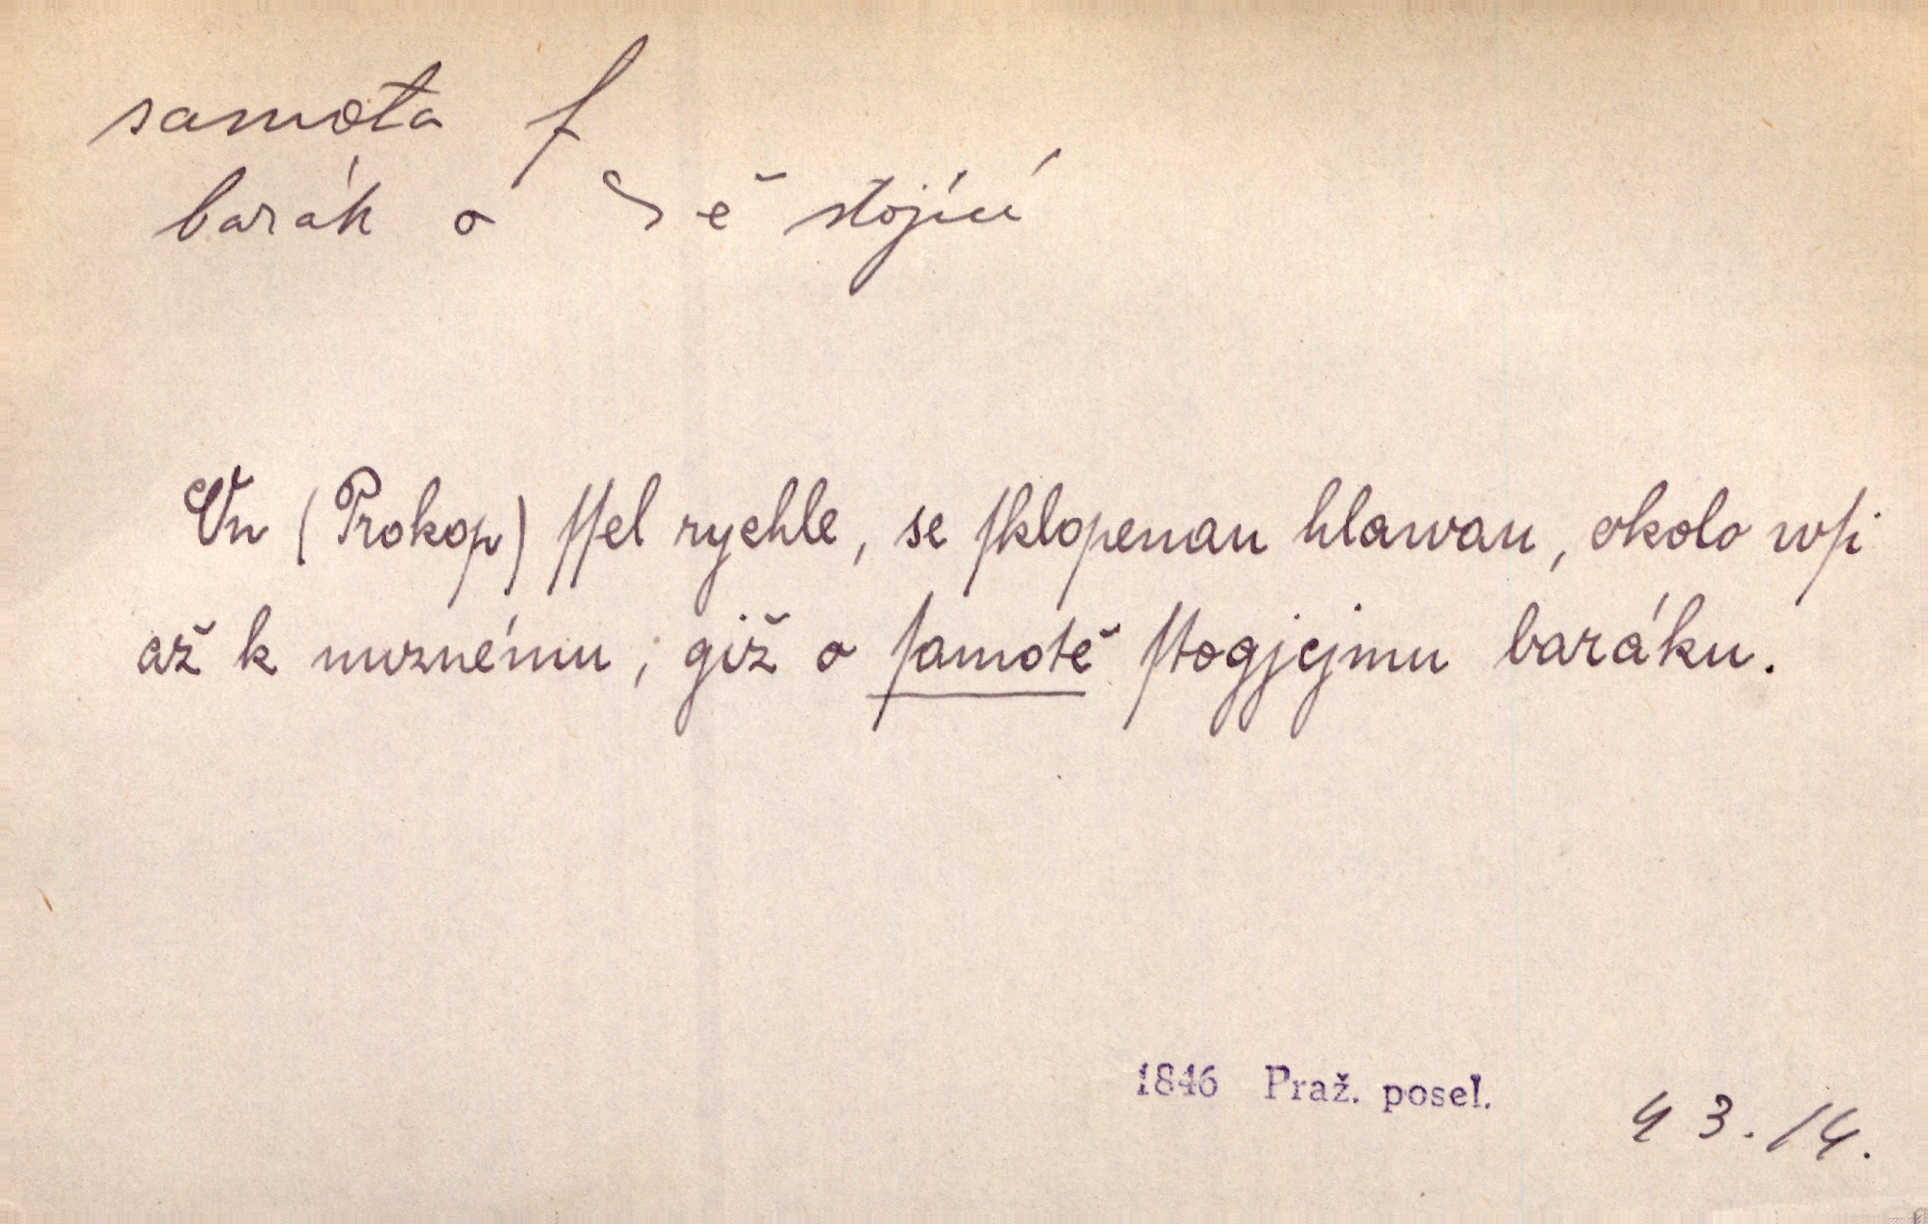 samota f
barák o ~ě stojící
On (Prokop) ſſel rychle, se ſklopenau hlawau, okolo wſi
až k nuznému, giž o ſamotě ſtogjcjmu baráku.
1846 Praž. posel.
43.14.